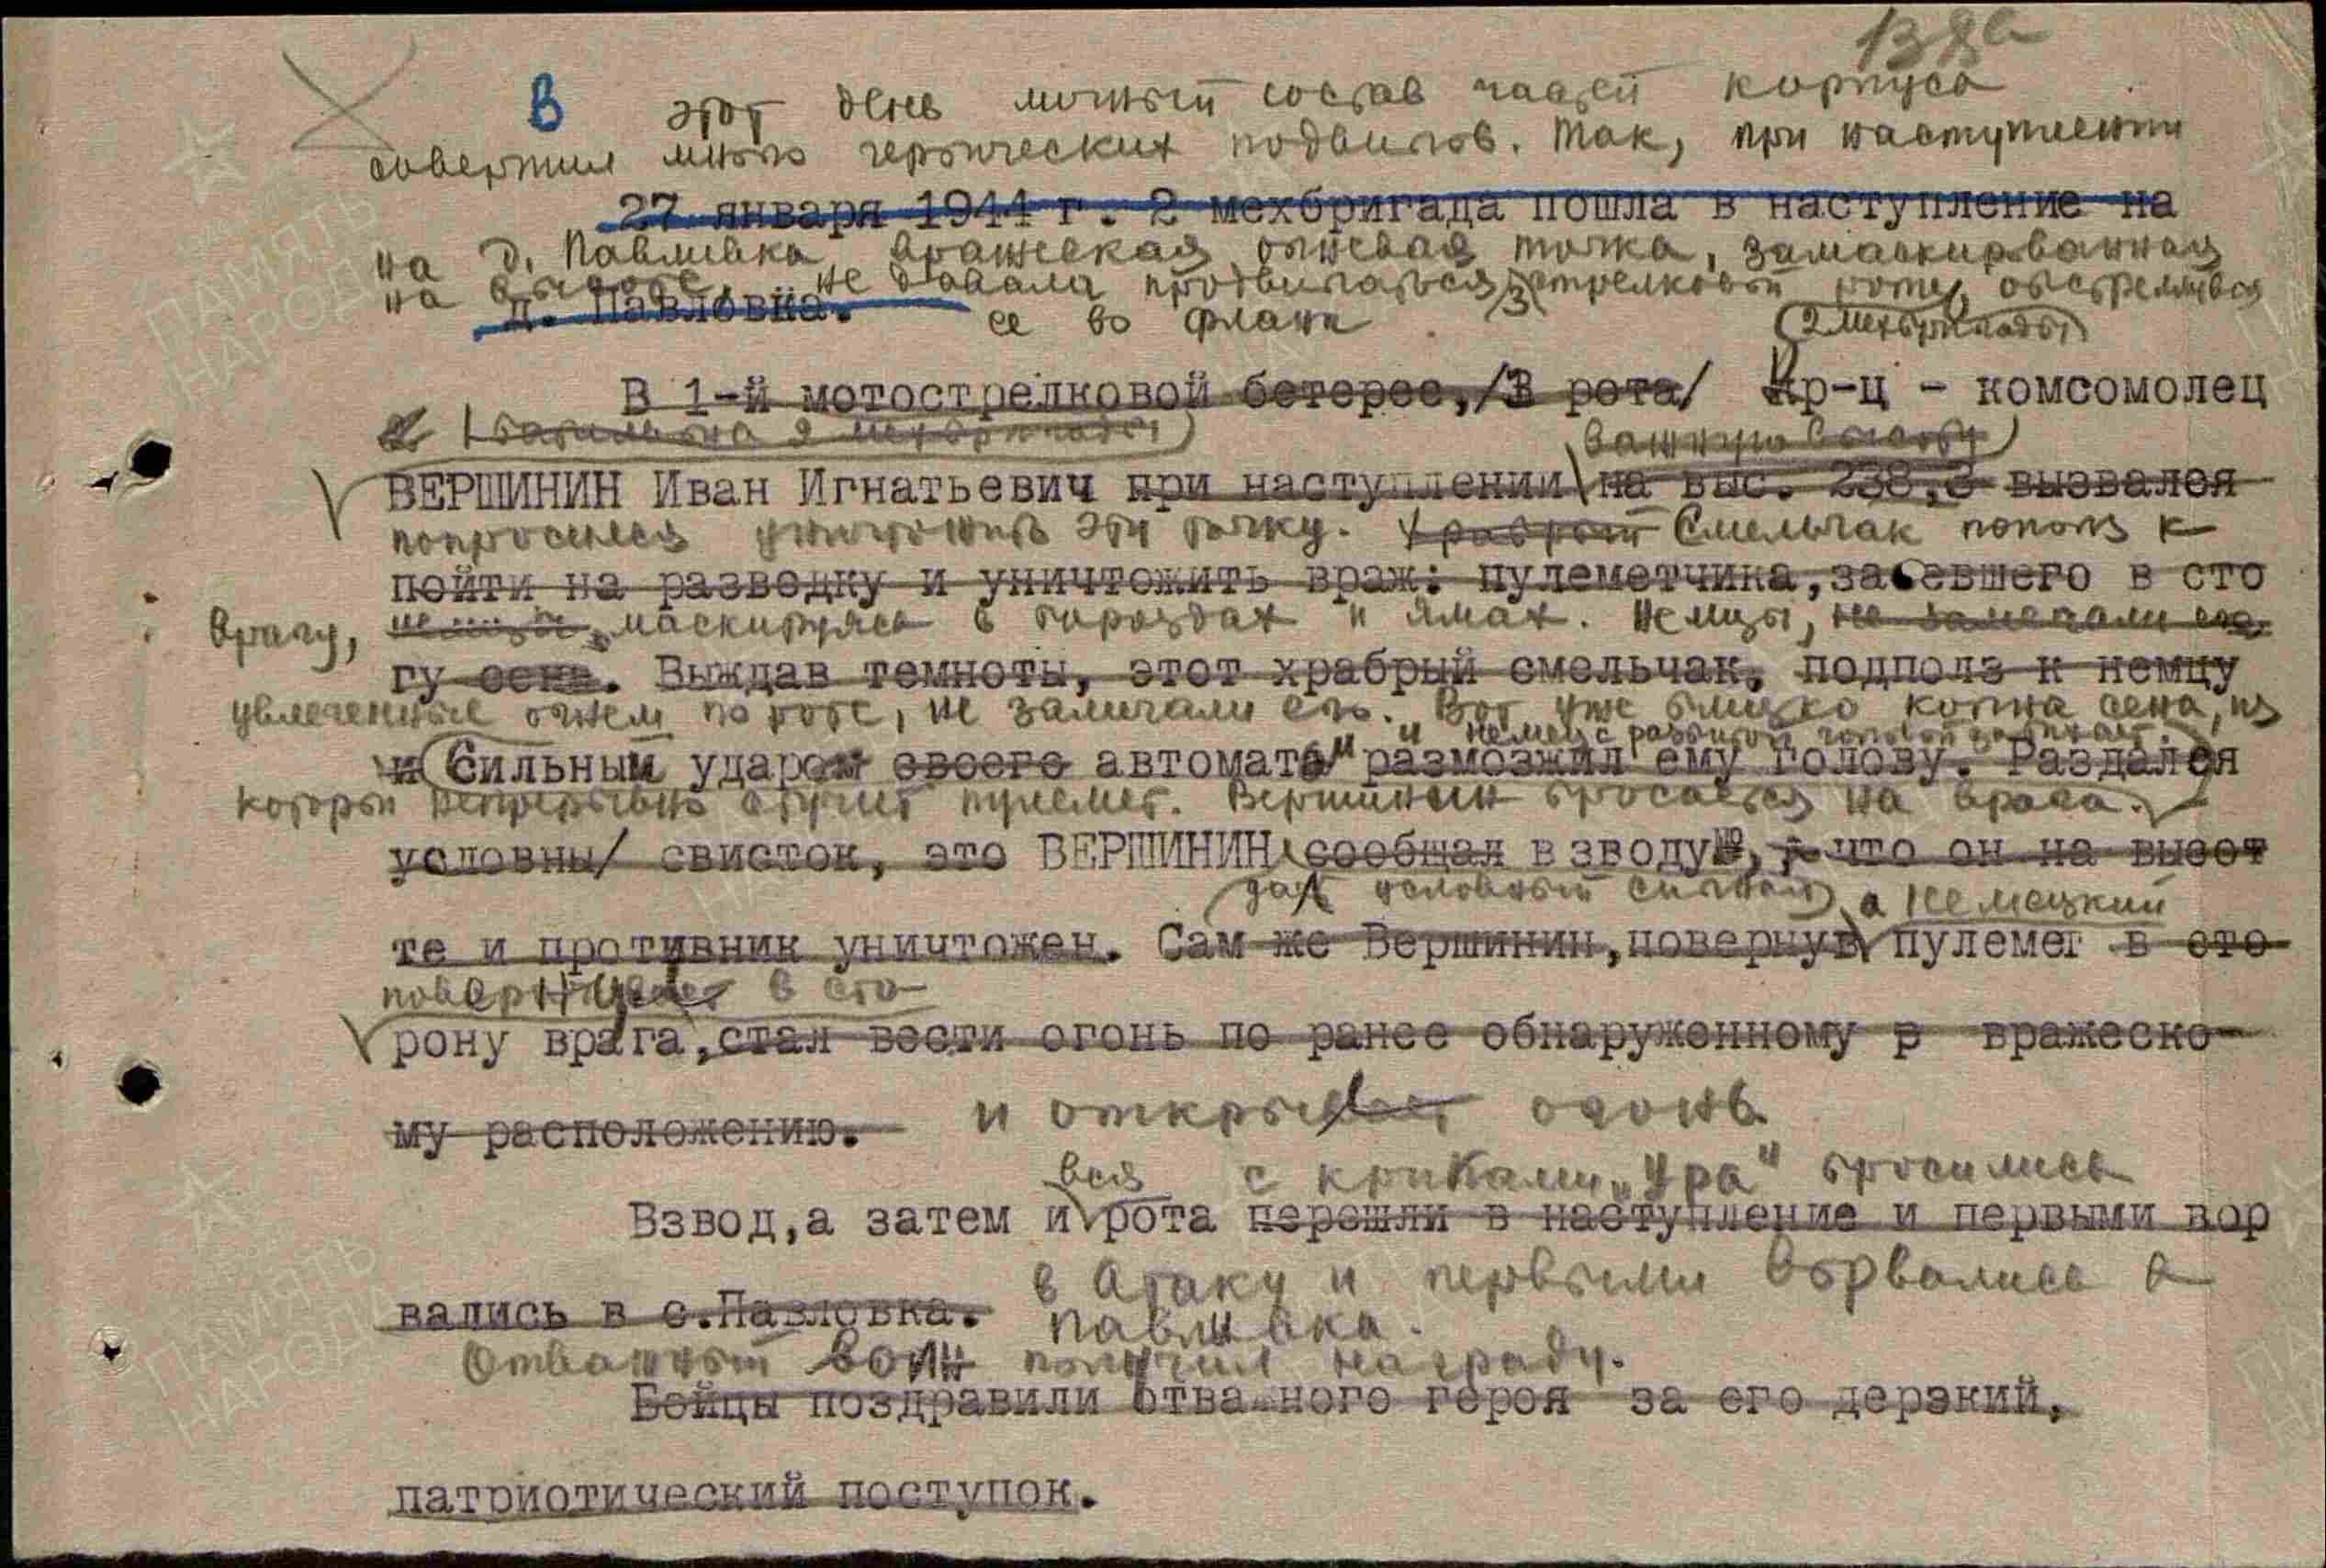 138а
В этот день личный состав частей корпуса
совершил много героических подвигов. Так, при наступлении
27 января 1944 г. 2 мехбригада пошла в наступление на
на д. Павливка вражеская огневая точка, замаскированная
на высоте, не давала продвигаться 3 стрелковой роте, обстреливая
д. Павловка.
ее во фланг
2 мехбригады
В 1-й мотострелковой бетерее,/3 рота/ Кр-ц - комсомолец
батальона 2 мехбригады
важную высоту
ВЕРШИНИН Иван Игнатьевич при наступлении на выс. 238,3 вызвался
попросился уничтожить эту точку. Храбрый Смельчак пополз к
пойти на разведку и уничтожить враж: пулеметчика,засевшего в сто
врагу, маскируясь в бороздах и ямах. Немцы, не замечали его
гу сена. Выждав темноты, этот храбрый смельчак, подполз к немцу
увлеченные огнем по роте, не замечали его. Вот уже близко копна сена, из
немец с разбитой головой
и Сильный ударом своего автомата размозжил ему голову. Раздался
которой непрерывно строчит пулемет. Вершинин бросается на врага.
условны/ свисток, это ВЕРШИНИН сообщал взводу, что он на высот
дал условный сигнал, а немецкий
те и противник уничтожен. Сам же Вершинин,повернув пулемет в сто
повернул в сто-
рону врага,стал вести огонь по ранее обнаруженному р вражеско-
му расположению. и открыл огонь.
вся с криками „Ура" бросились
Взвод,а затем и рота перешли в наступление и первыми вор
в атаку и первыми ворвались в
вались в с.Павловка.
Павливка.
Отважный воин получил награду.
Бойцы поздравили отважного героя за его дерзкий,
патриотический поступок.
ПАМЯТЬ
НАРОДА
ПАМЯТЬ
НАРОДА